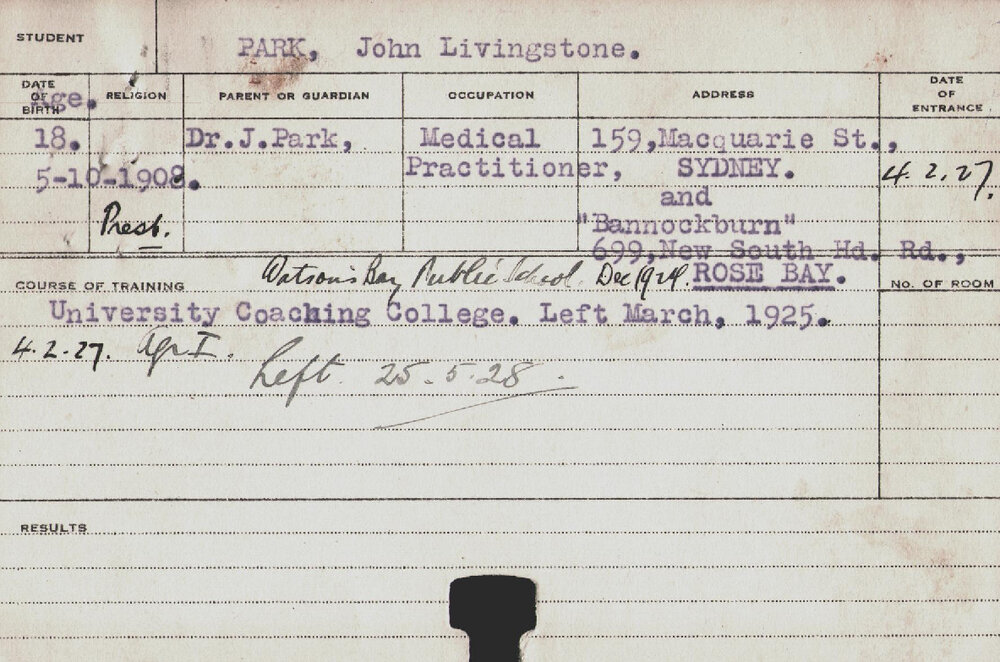 STUDENT PARK, John Livingstone.
DATE OF BIRTH Age. RELIGION PARENT OR GUARDIAN OCCUPATION ADDRESS DATE OF ENTRANCE
18. Dr.J.Park, Medical 159,Macquarie St.,
5-10-1908. Practitioner, SYDNEY. 4.2.27.
and
Presb. "Bannockburn"
699,New South Hd. Rd.,
COURSE OF TRAINING Watson's Bay Public School. Dec 1924. ROSE BAY. No. OF ROOM
University Coaching College. Left March, 1925.
4.2.27. Agr I.
Left. 25.5.28.
RESULTS